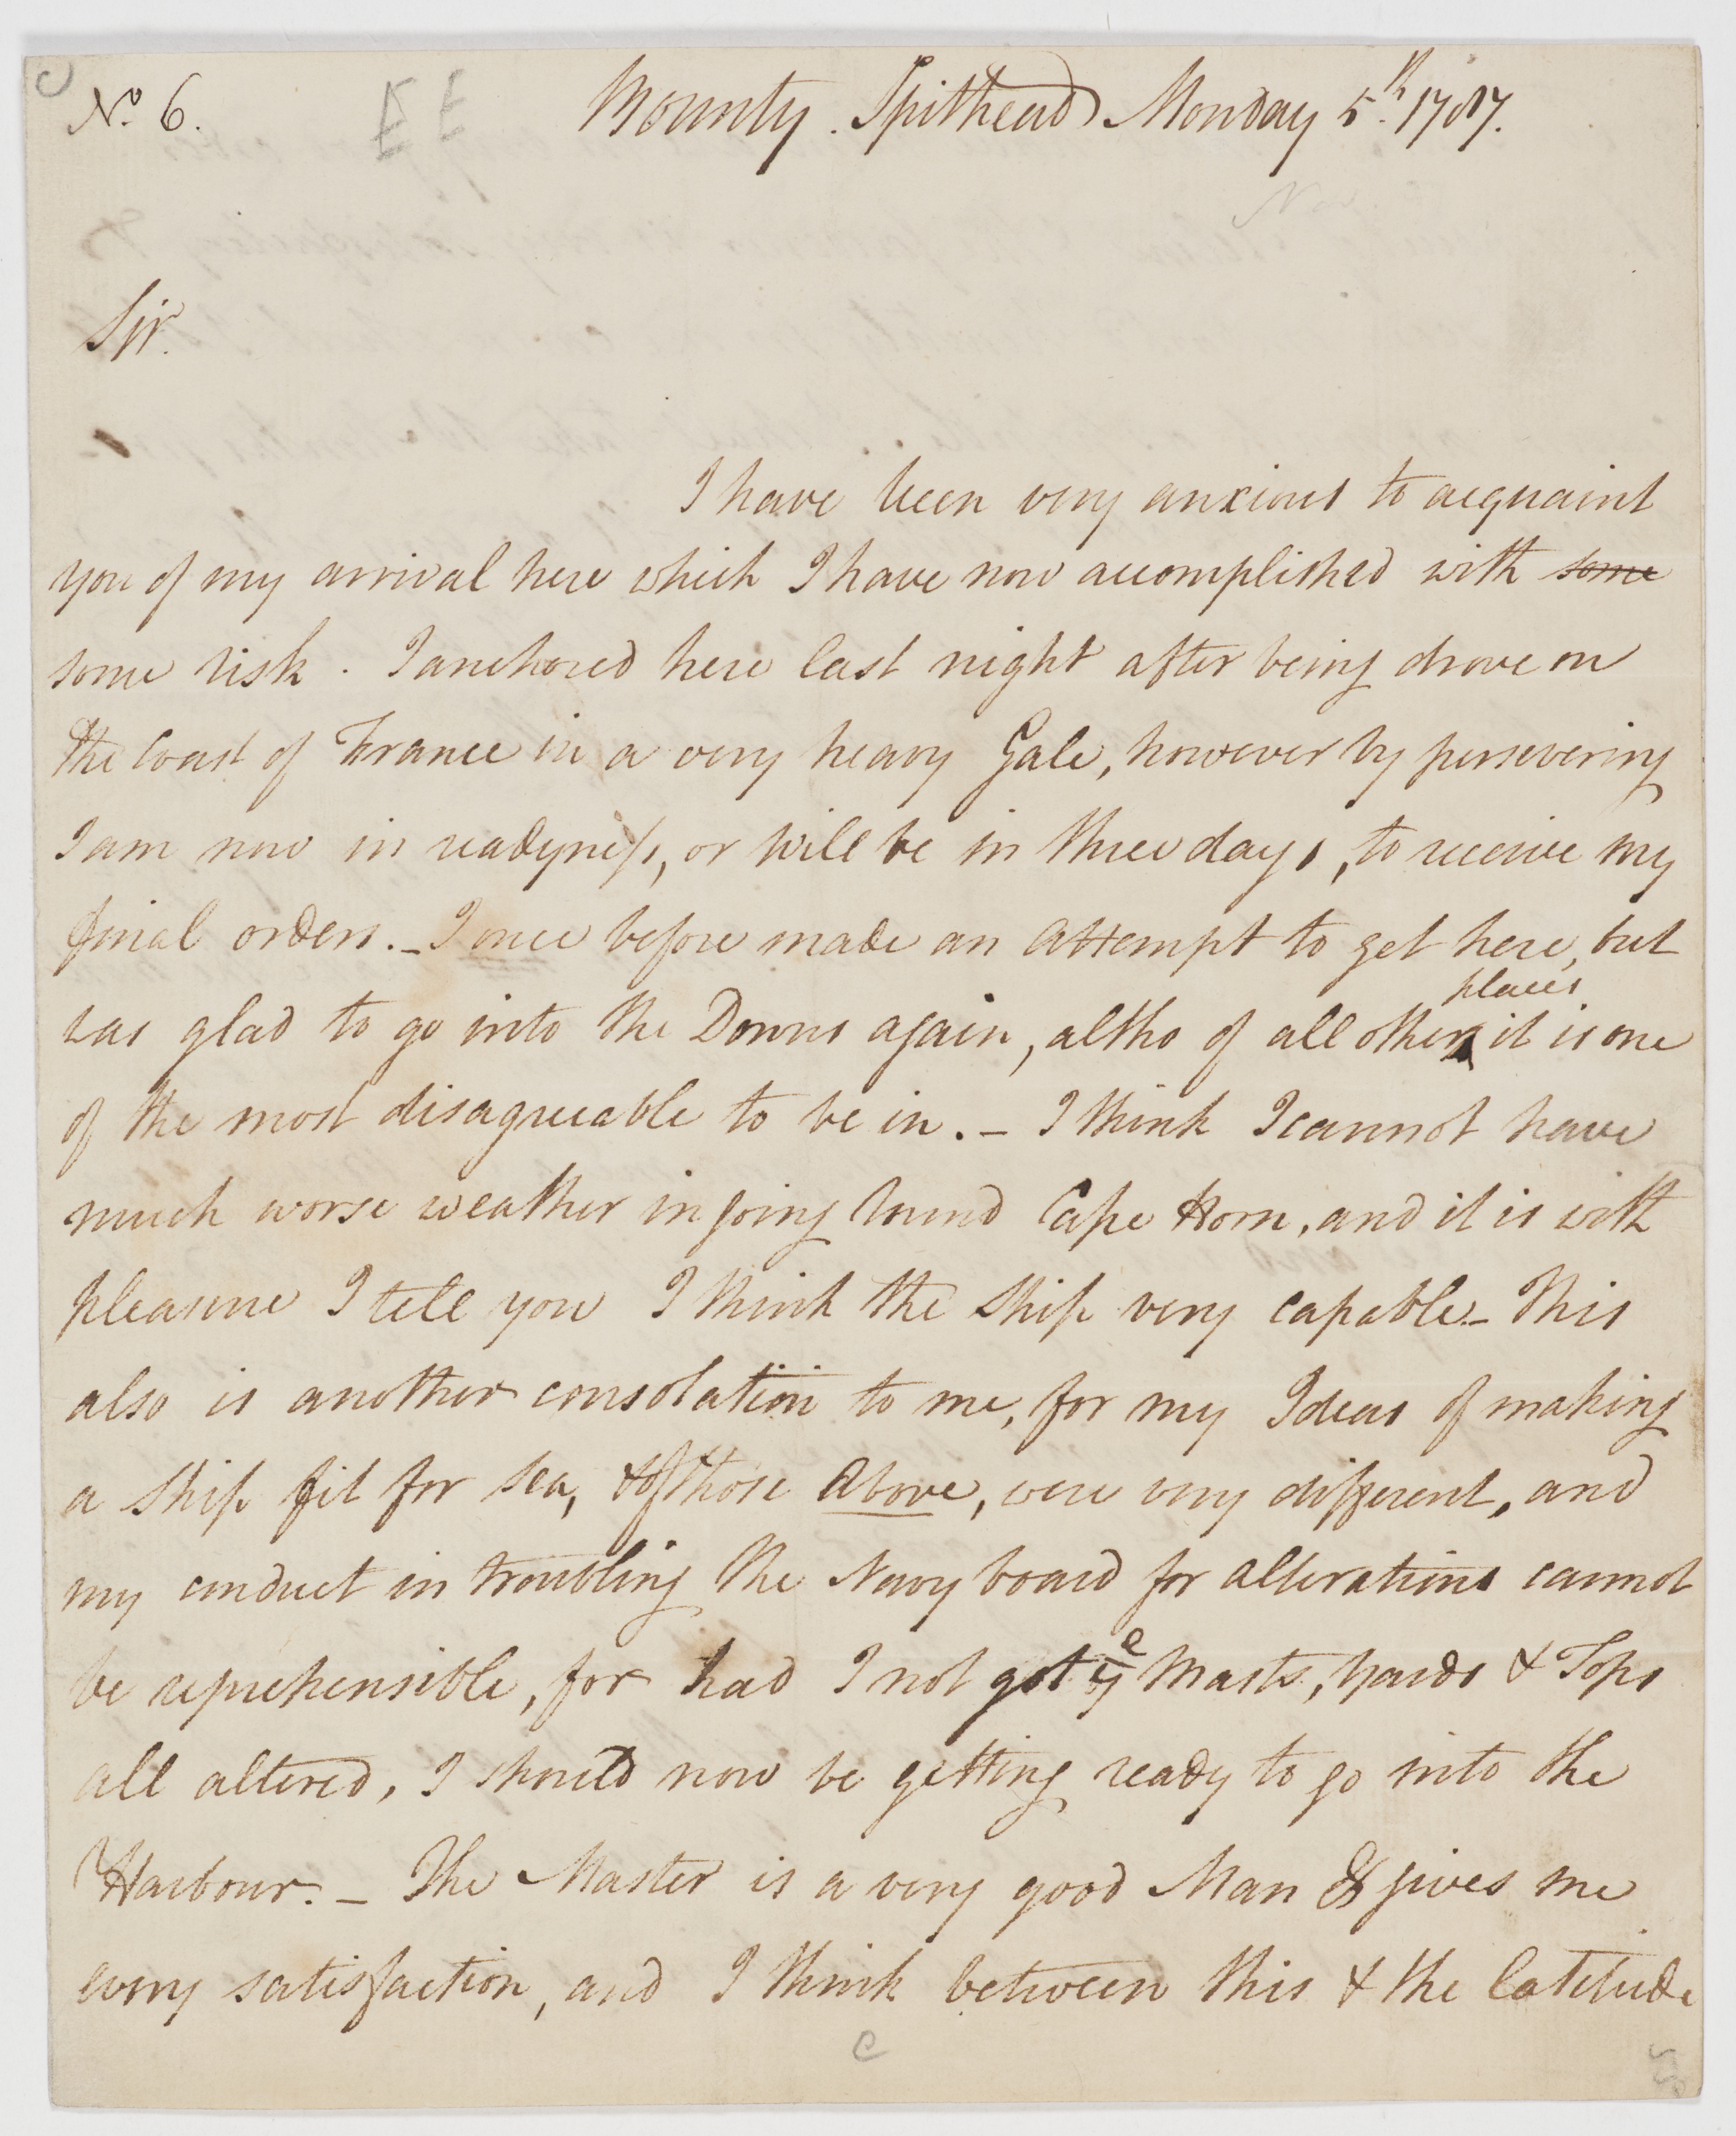 No. 6.
E E
Bounty. Spithead Monday 5th. 1787.
Nov
Sir.
I have been very anxious to acquaint
you of my arrival here which I have now accomplished with some
some risk. I anchored here last night after being drove on
the Coast of France in a very heavy Gale, however by persevering
I am now in readyness, or will be in three days, to receive my
final orders._ I once before made an attempt to get here, but
was glad to go into the Downs again, altho of all other places it is one
of the most disagreeable to be in._ I think I cannot have
much worse weather in going round Cape Horn, and it is with
pleasure I tell you I think the ship very capable_ This
also is another consolation to me, for my Ideas of making
a ship fit for sea, & of those above, were very different, and
my conduct in troubling the Navy board for alterations cannot
be reprehensible, for had I not got ye Masts, Yards & Tops
all altered, I should now be getting ready to go into the
Harbour._ The Master is a very good Man & gives me
every satisfaction, and I think between this & the latitude